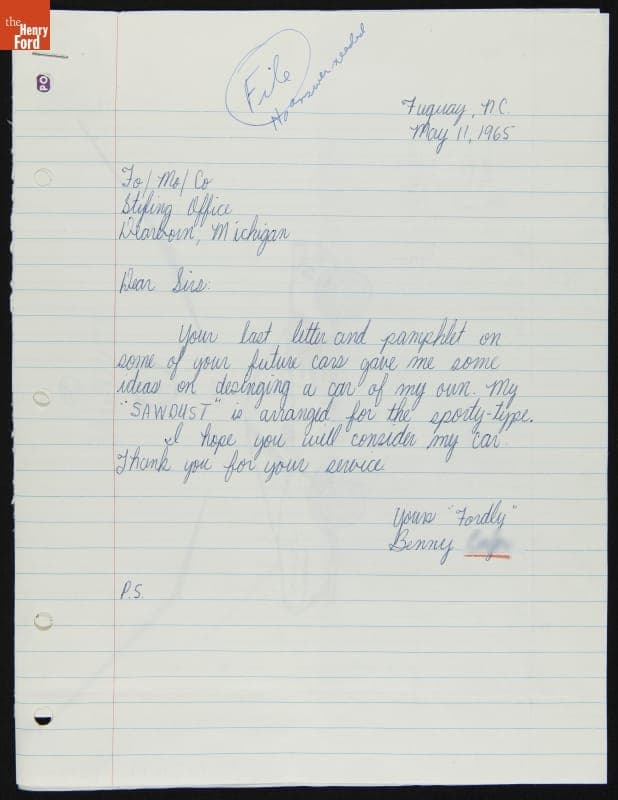 the
Henry
Ford
PO
File
No answer needed
Fuquay, N.C.
May 11, 1965
Fo/Mo/Co
Styling Office
Dearborn, Michigan
Dear Sirs:
Your last letter and pamphlet on
some of your future cars gave me some
ideas on desinging a car of my own. My
"SAWDUST" is arranged for the sporty-type.
I hope you will consider my car.
Thank you for your service.
Yours "Fordly"
Benny
P.S.